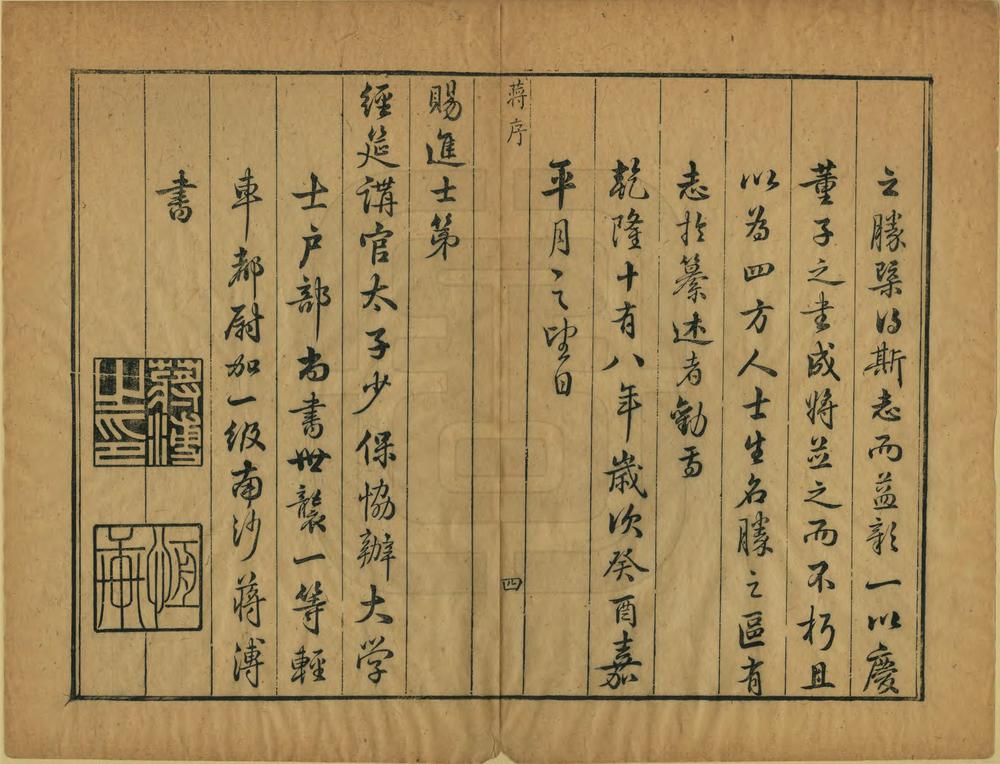 之勝槩得斯志而益彰一以慶
董子之書成將並之而不朽且
以為四方人士生名勝之區有
志於纂述者勸焉
乾隆十有八年歲次癸酉嘉
平月之望日
蔣序
四
賜進士第
經筵講官太子少保協辦大学
士户部尚書世襲一等輕
車都尉加一級南沙蔣溥
書
蔣溥之印
恆軒